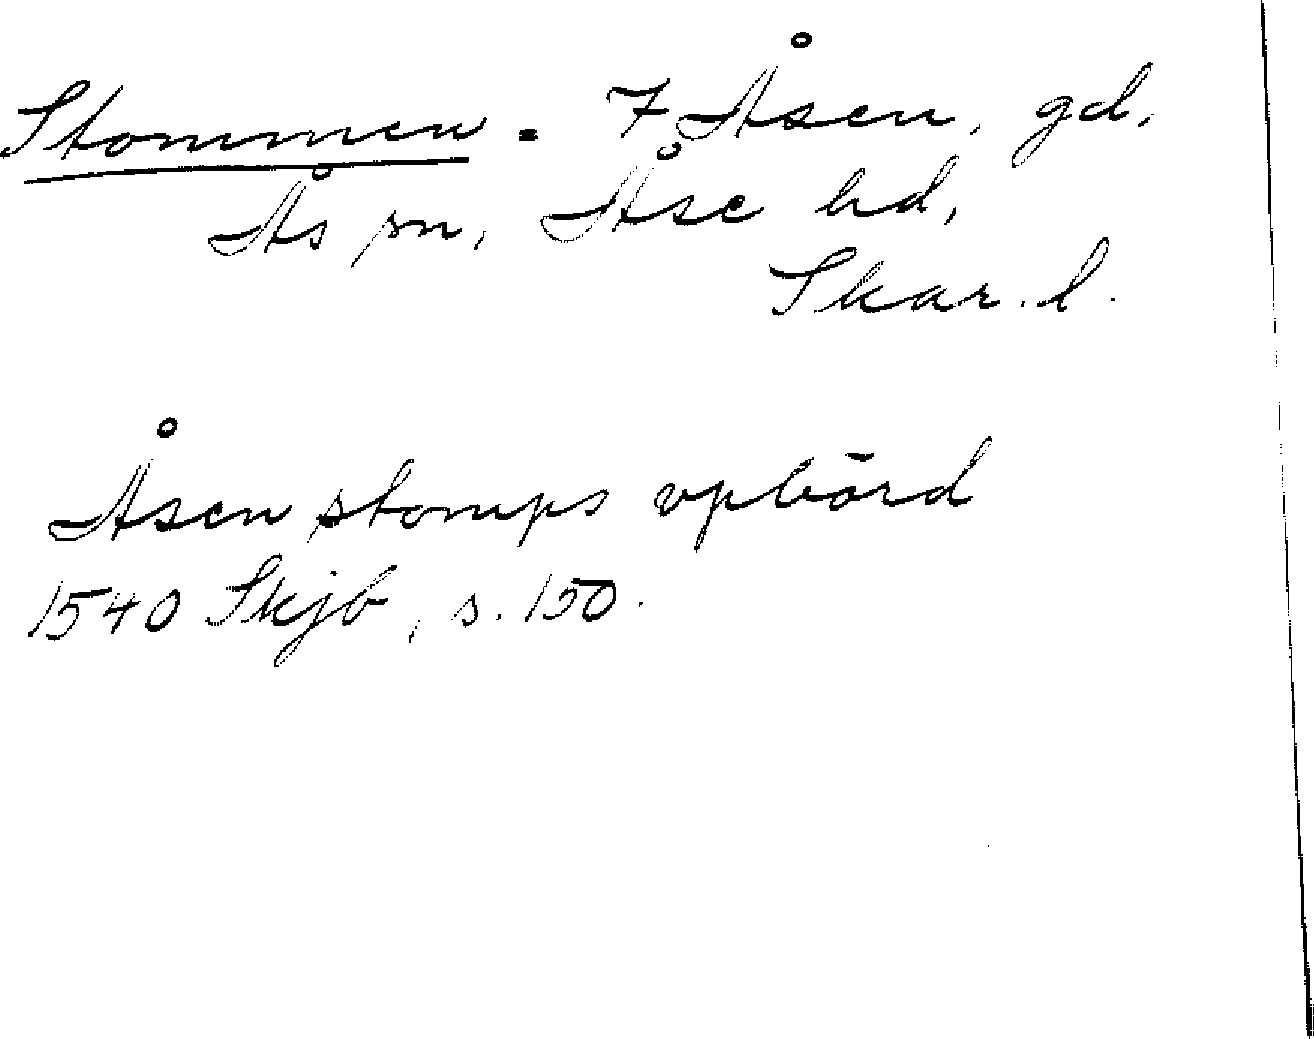 Stommen. 7 Åsen, gd,
Ås sn, Åse hd,
Skar. l.
Åsen stomps vpbörd
1540 Skjb, s. 150.